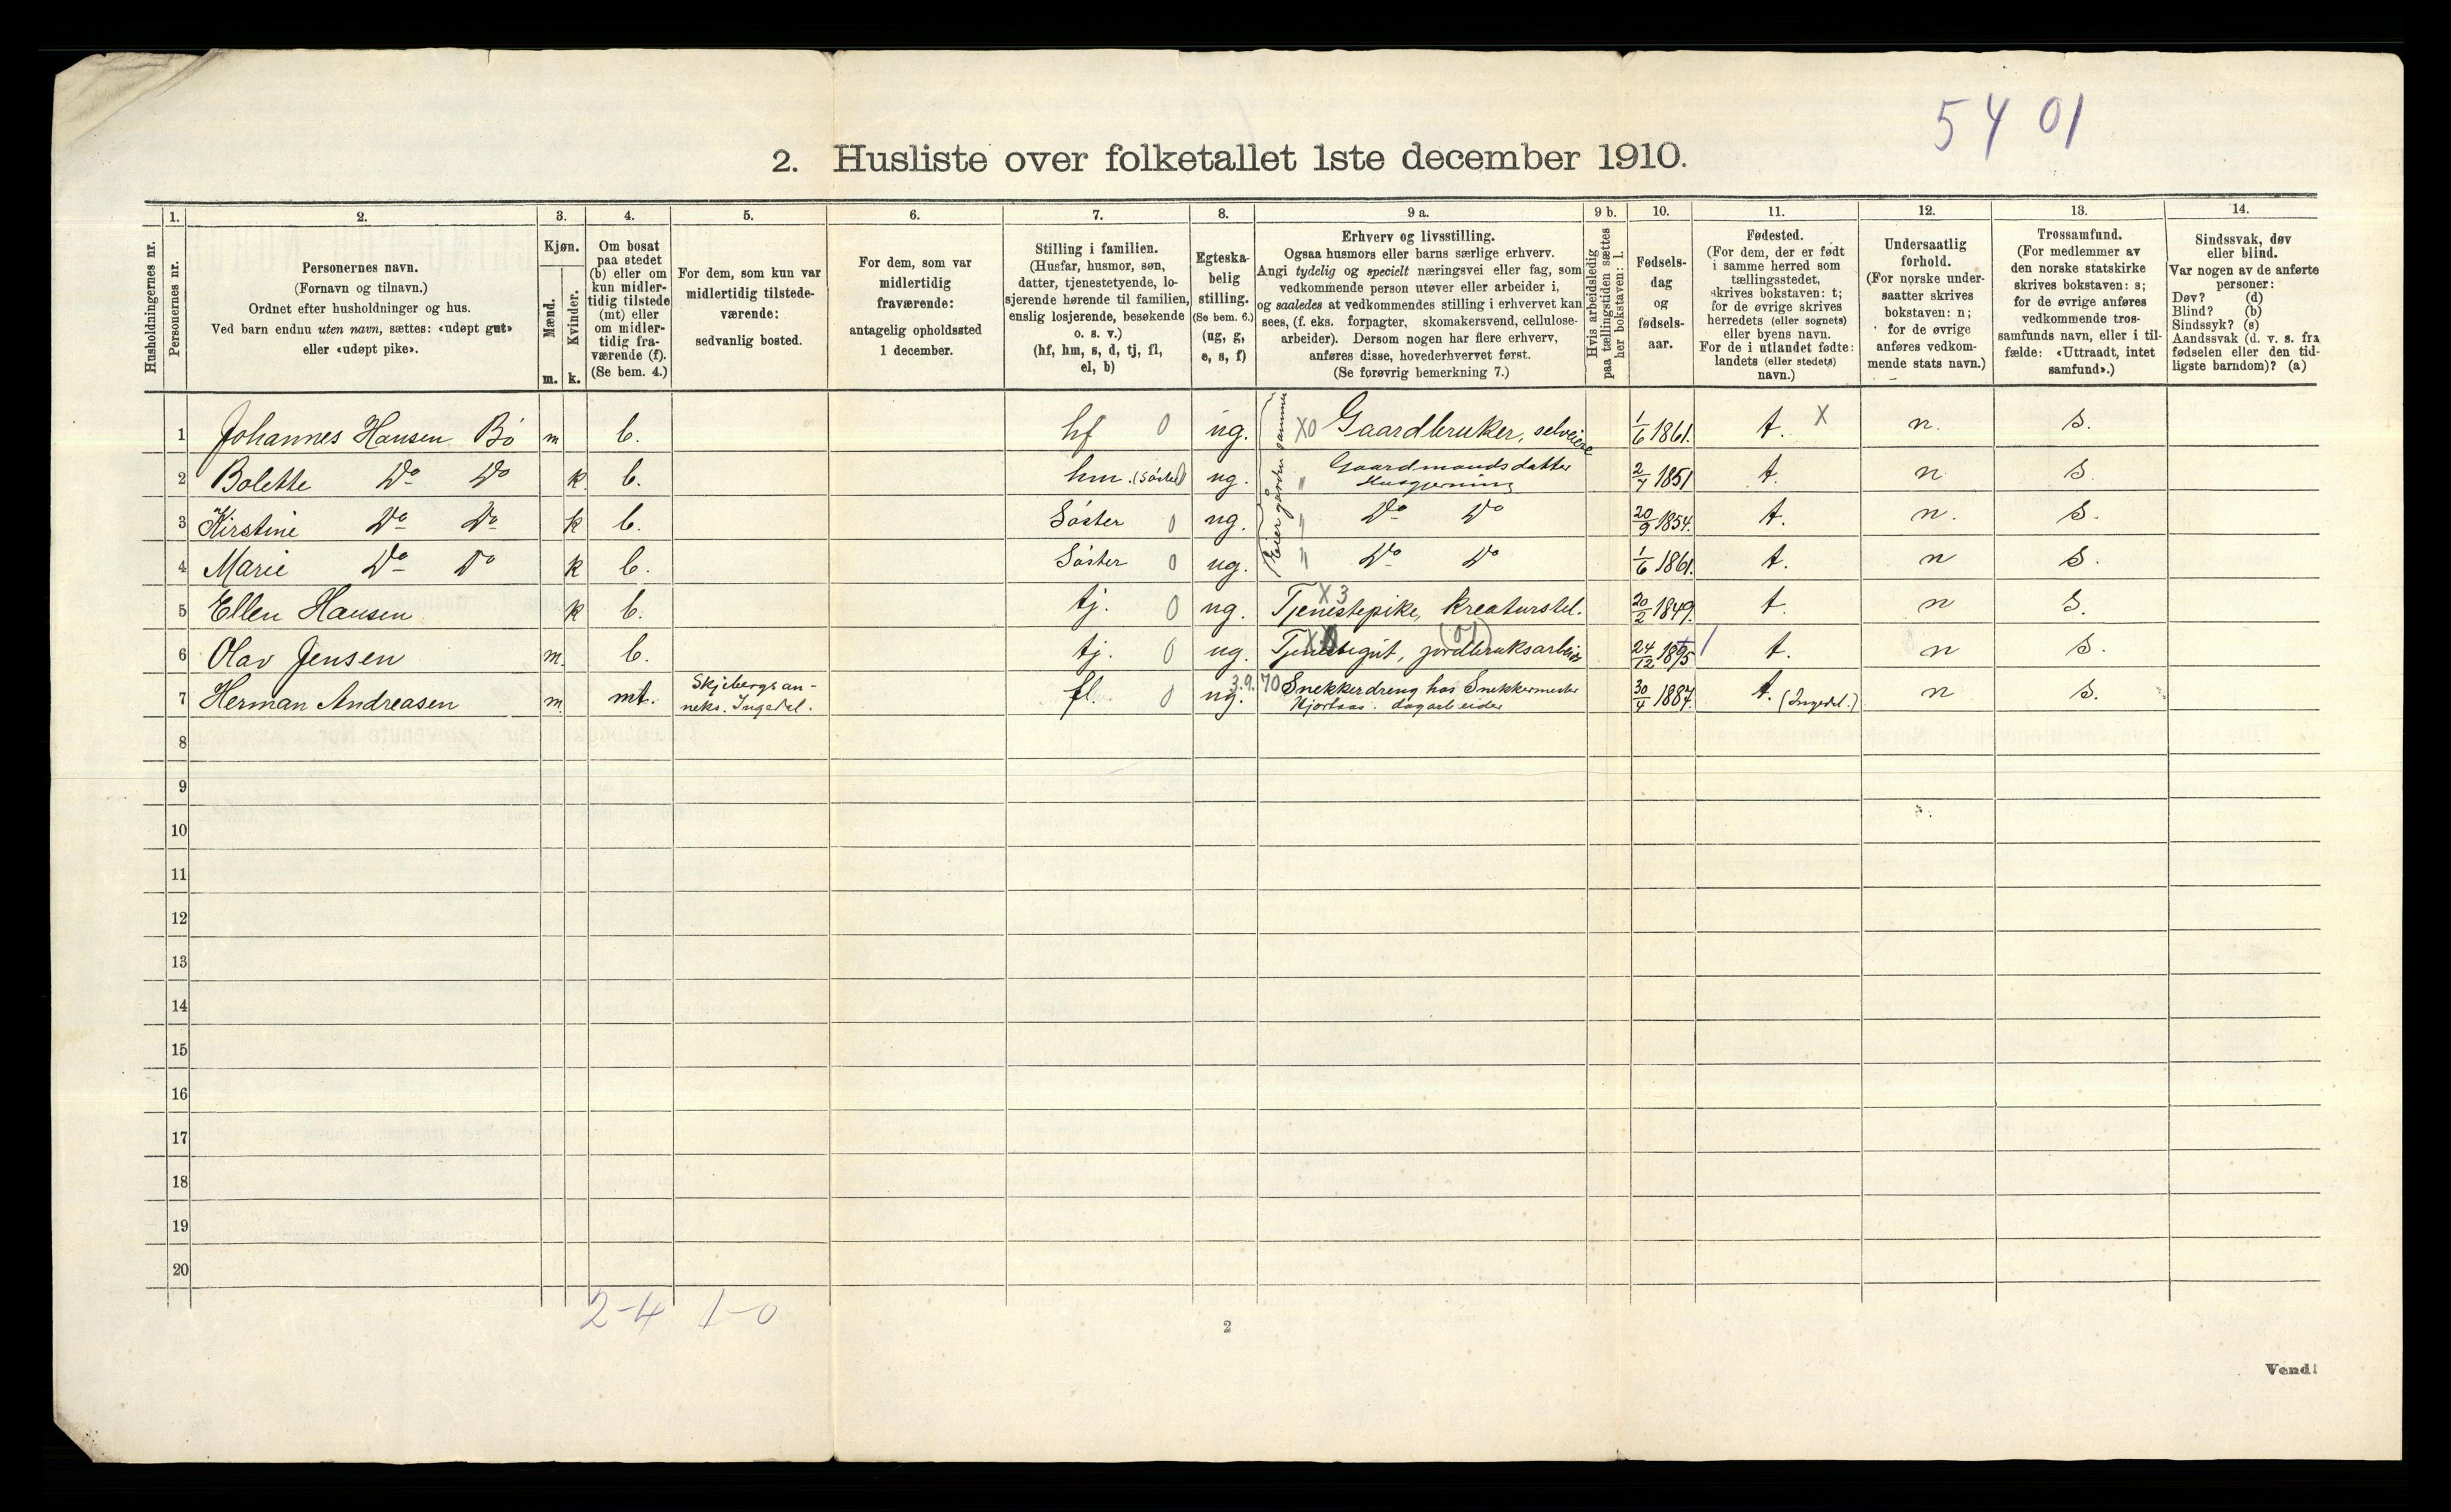 5401
2. Husliste over folketallet 1ste december 1910.
Husholdningernes nr.
1.
Personernes nr.
2.
Personernes navn.
(Fornavn og tilnavn.)
Ordnet efter husholdninger og hus.
Ved barn endnu uten navn, sættes: «udøpt gut»
eller «udøpt pike».
3.
Kjøn.
Mænd.
Kvinder.
m. k.
4.
Om bosat
paa stedet
(b) eller om
kun midler-
tidig tilstede
(mt) eller
om midler-
tidig fra-
værende (f).
(Se bem. 4.)
5.
For dem, som kun var
midlertidig tilstede-
værende:
sedvanlig bosted.
6.
For dem, som var
midlertidig
fraværende:
antagelig opholdssted
1 december.
7.
Stilling i familien.
(Husfar, husmor, søn,
datter, tjenestetyende, lo-
sjerende hørende til familien,
enslig losjerende, besøkende
o. s. v.)
(hf, hm, s, d, tj, fl,
el, b)
8.
Egteska-
belig
stilling.
(Se bem. 6.)
(ug, g,
e, s, f)
9 a.
Erhverv og livsstilling.
Ogsaa husmors eller barns særlige erhverv.
Angi tydelig og specielt næringsvei eller fag, som
vedkommende person utøver eller arbeider i,
og saaledes at vedkommendes stilling i erhvervet kan
sees, (f. eks. forpagter, skomakersvend, cellulose-
arbeider). Dersom nogen har flere erhverv,
anføres disse, hovederhvervet først.
(Se forøvrig bemerkning 7.)
9 b.
Hvis arbeidsledig
paa tællingstiden sættes
her bokstaven: l.
10.
Fødsels-
dag
og
fødsels-
aar.
11.
Fødested.
(For dem, der er født
i samme herred som
tællingsstedet,
skrives bokstaven: t;
for de øvrige skrives
herredets (eller sognets)
eller byens navn.
For de i utlandet fødte:
landets (eller stedets)
navn.)
12.
Undersaatlig
forhold.
(For norske under-
saatter skrives
bokstaven: n;
for de øvrige
anføres vedkom-
mende stats navn.)
13.
Trossamfund.
(For medlemmer av
den norske statskirke
skrives bokstaven: s;
for de øvrige anføres
vedkommende tros-
samfunds navn, eller i til-
fælde: «Uttraadt, intet
samfund».)
14.
Sindssvak, døv
eller blind.
Var nogen av de anførte
personer:
Døv? (d)
Blind? (b)
Sindssyk? (s)
Aandssvak (d. v. s. fra
fødselen eller den tid-
ligste barndom)? (a)
Eier gården sammen
1 Johannes Hansen Bö m b. hf 0 ug. X0 Gaardbruker, selveier 1/6 1861. t. X n. s.
2 Bolette Do Do k b. hm. (Söster) 0 ug. " Gaardmandsdatter Husgjerning 2/7 1851 t. n s.
3 Kirstine Do Do k b. Söster 0 ug. " Do Do 20/9 1854. t. n. s.
4 Marie Do Do k b. Söster 0 ug. " Do Do 1/6 1861. t. n s.
5 Ellen Hansen k b. tj. 0 ug. X3 Tjenestepike, kreaturstel. 20/2 1849. t. n s.
6 Olav Jensen m. b. tj. 0 ug. Tjenestegut, jordbruksarbeide (01) 24/12 1895 t. n s.
7 Herman Andreasen m. mt. Skjebergs an-
neks. Ingedal. fl. 0 ug. 3.9. 70 Snekkerdreng hos Snekkermester
Hjortaas. dagarbeider 30/4 1887. t. (Ingedal.) n s.
8
9
10
11
12
13
14
15
16
17
18
19
20
2-4 1-0
2
Vend!